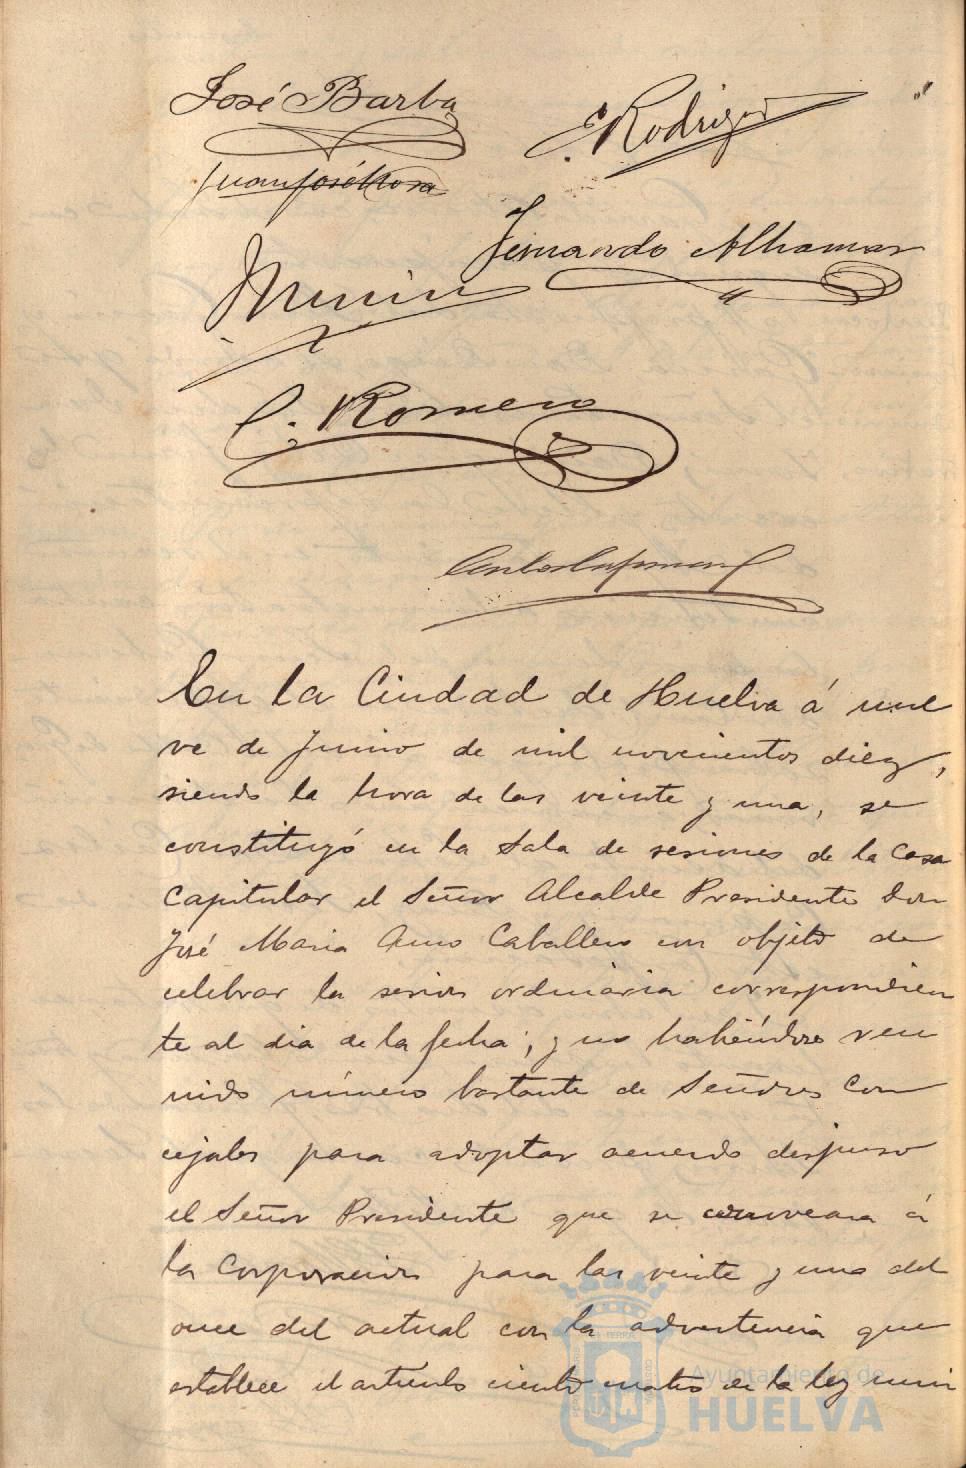 José Barba
E. Rodrigu
Juan José Rosa
Fernando Alhamar
C. Romero
En la Ciudad de Huelva á nue
ve de Junio de mil novecientos diez,
siendo la hora de las veinte y una, se
constituyó en la Sala de sesiones de la Casa
Capitular el Señor Alcalde Presidente Don
José Maria Amo Caballero con objeto de
celebrar la sesion ordinaria correspondien
te al dia de la fecha; y no habiéndose reu
nido número bastante de Señores Con
cejales para adoptar acuerdo dispuso
el Señor Presidente que se convocara á
la Corporacion para las veinte y una del
once del actual con la advertencia que
establece el artículo ciento cuatro de la ley muni
Ayuntamiento de
HUELVA